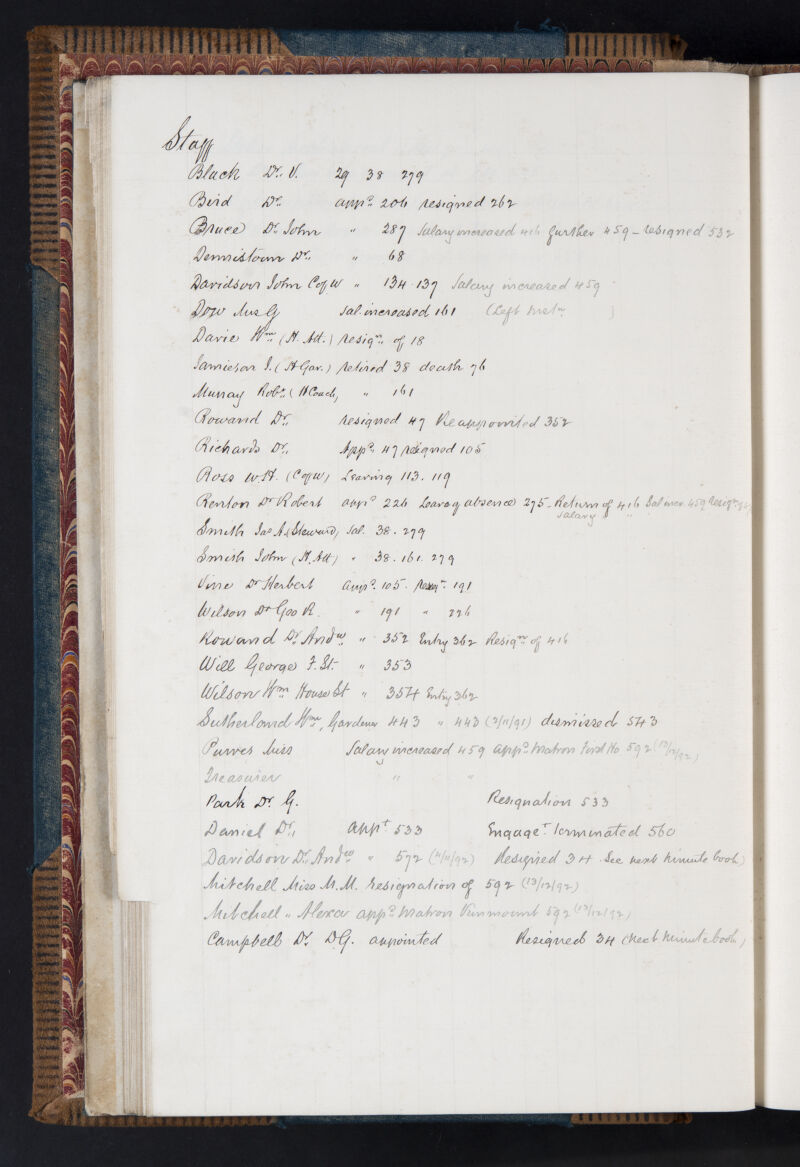 Staff
Black Dr. V. 29 38 279
Bird Dr. appd. 206 resigned 262
Bruce Dr. John " 287 Salary increased 416 further 459 - resigned 532
Dennistoun Dr. " 68
Davidson John C of W " 134. 137 Salary increased 459
Dow Miss G Sal. increased 161 (Left
Davie Wm. (H. Att.) resign. of 18
Jamieson J. (H Gar.) retired 38 death 76
Murray Robt. (H Coach) " 161
Rowand Dr. resigned 47 Reappointed 352
Richards Dr. Appd. 47 resigned 105
Ross W H. (C of W) Leaving 113. 119
Renton Dr Robert appd 226 Leave of absence 275 - Return of 416 Sal incr. 459
salary "
Smith Jas A. (Steward) Sal. 38. 279
Smith John (H. Att) " 38. 161. 279
Vine Dr Herbert appd. 105. resign. 191
Wilson Dr Geo R. " 191 " 226
Rowand Dr. Andw. " 352 Entry 362 Resign. of 416
Will George F. St. " 353
Wilson Wm House St " 354 Entry 362
Sutherland Wm, Gardener 443 " 443 (2/11/91) dismissed 543
Purves Miss Salary increased 459 appd. Matron Ho 592 (13/12/92)
Treasurer " "
Park Dr. G. Resignation 533
Daniel Dr. appt 533 Engaget. terminated 560
Davidson Dr. Andw " 572 (11/92) Resigned 34 See next Minute Book)
Mitchell Miss M. M. resignation of 592 (13/12/92)
Mitchell " Alexa appd. Matron Kinmount 592 (13/12/92)
Campbell Dr. D G. appointed Resigned 34 (next Minute book)